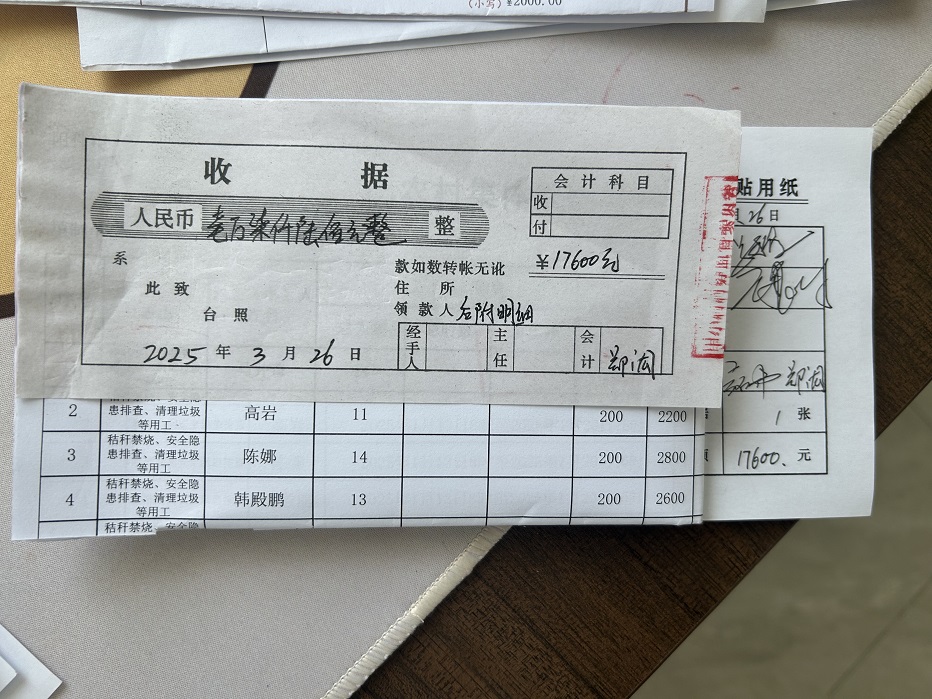 (小写)¥2000.00
收 据
会计科目
收
付
人民币 壹万柒仟陆佰元整 整
系
款如数转帐无讹 ¥17600元
此致
住所
台照
领款人 后附明细
2025 年 3 月 26 日
经手人 主任 会计
贴用纸
月 26 日
2 秸秆禁烧、安全隐患排查、清理垃圾等用工 高岩 11 200 2200
1 张
3 秸秆禁烧、安全隐患排查、清理垃圾等用工 陈娜 14 200 2800
17600. 元
4 秸秆禁烧、安全隐患排查、清理垃圾等用工 韩殿鹏 13 200 2600
秸秆禁烧、安全隐